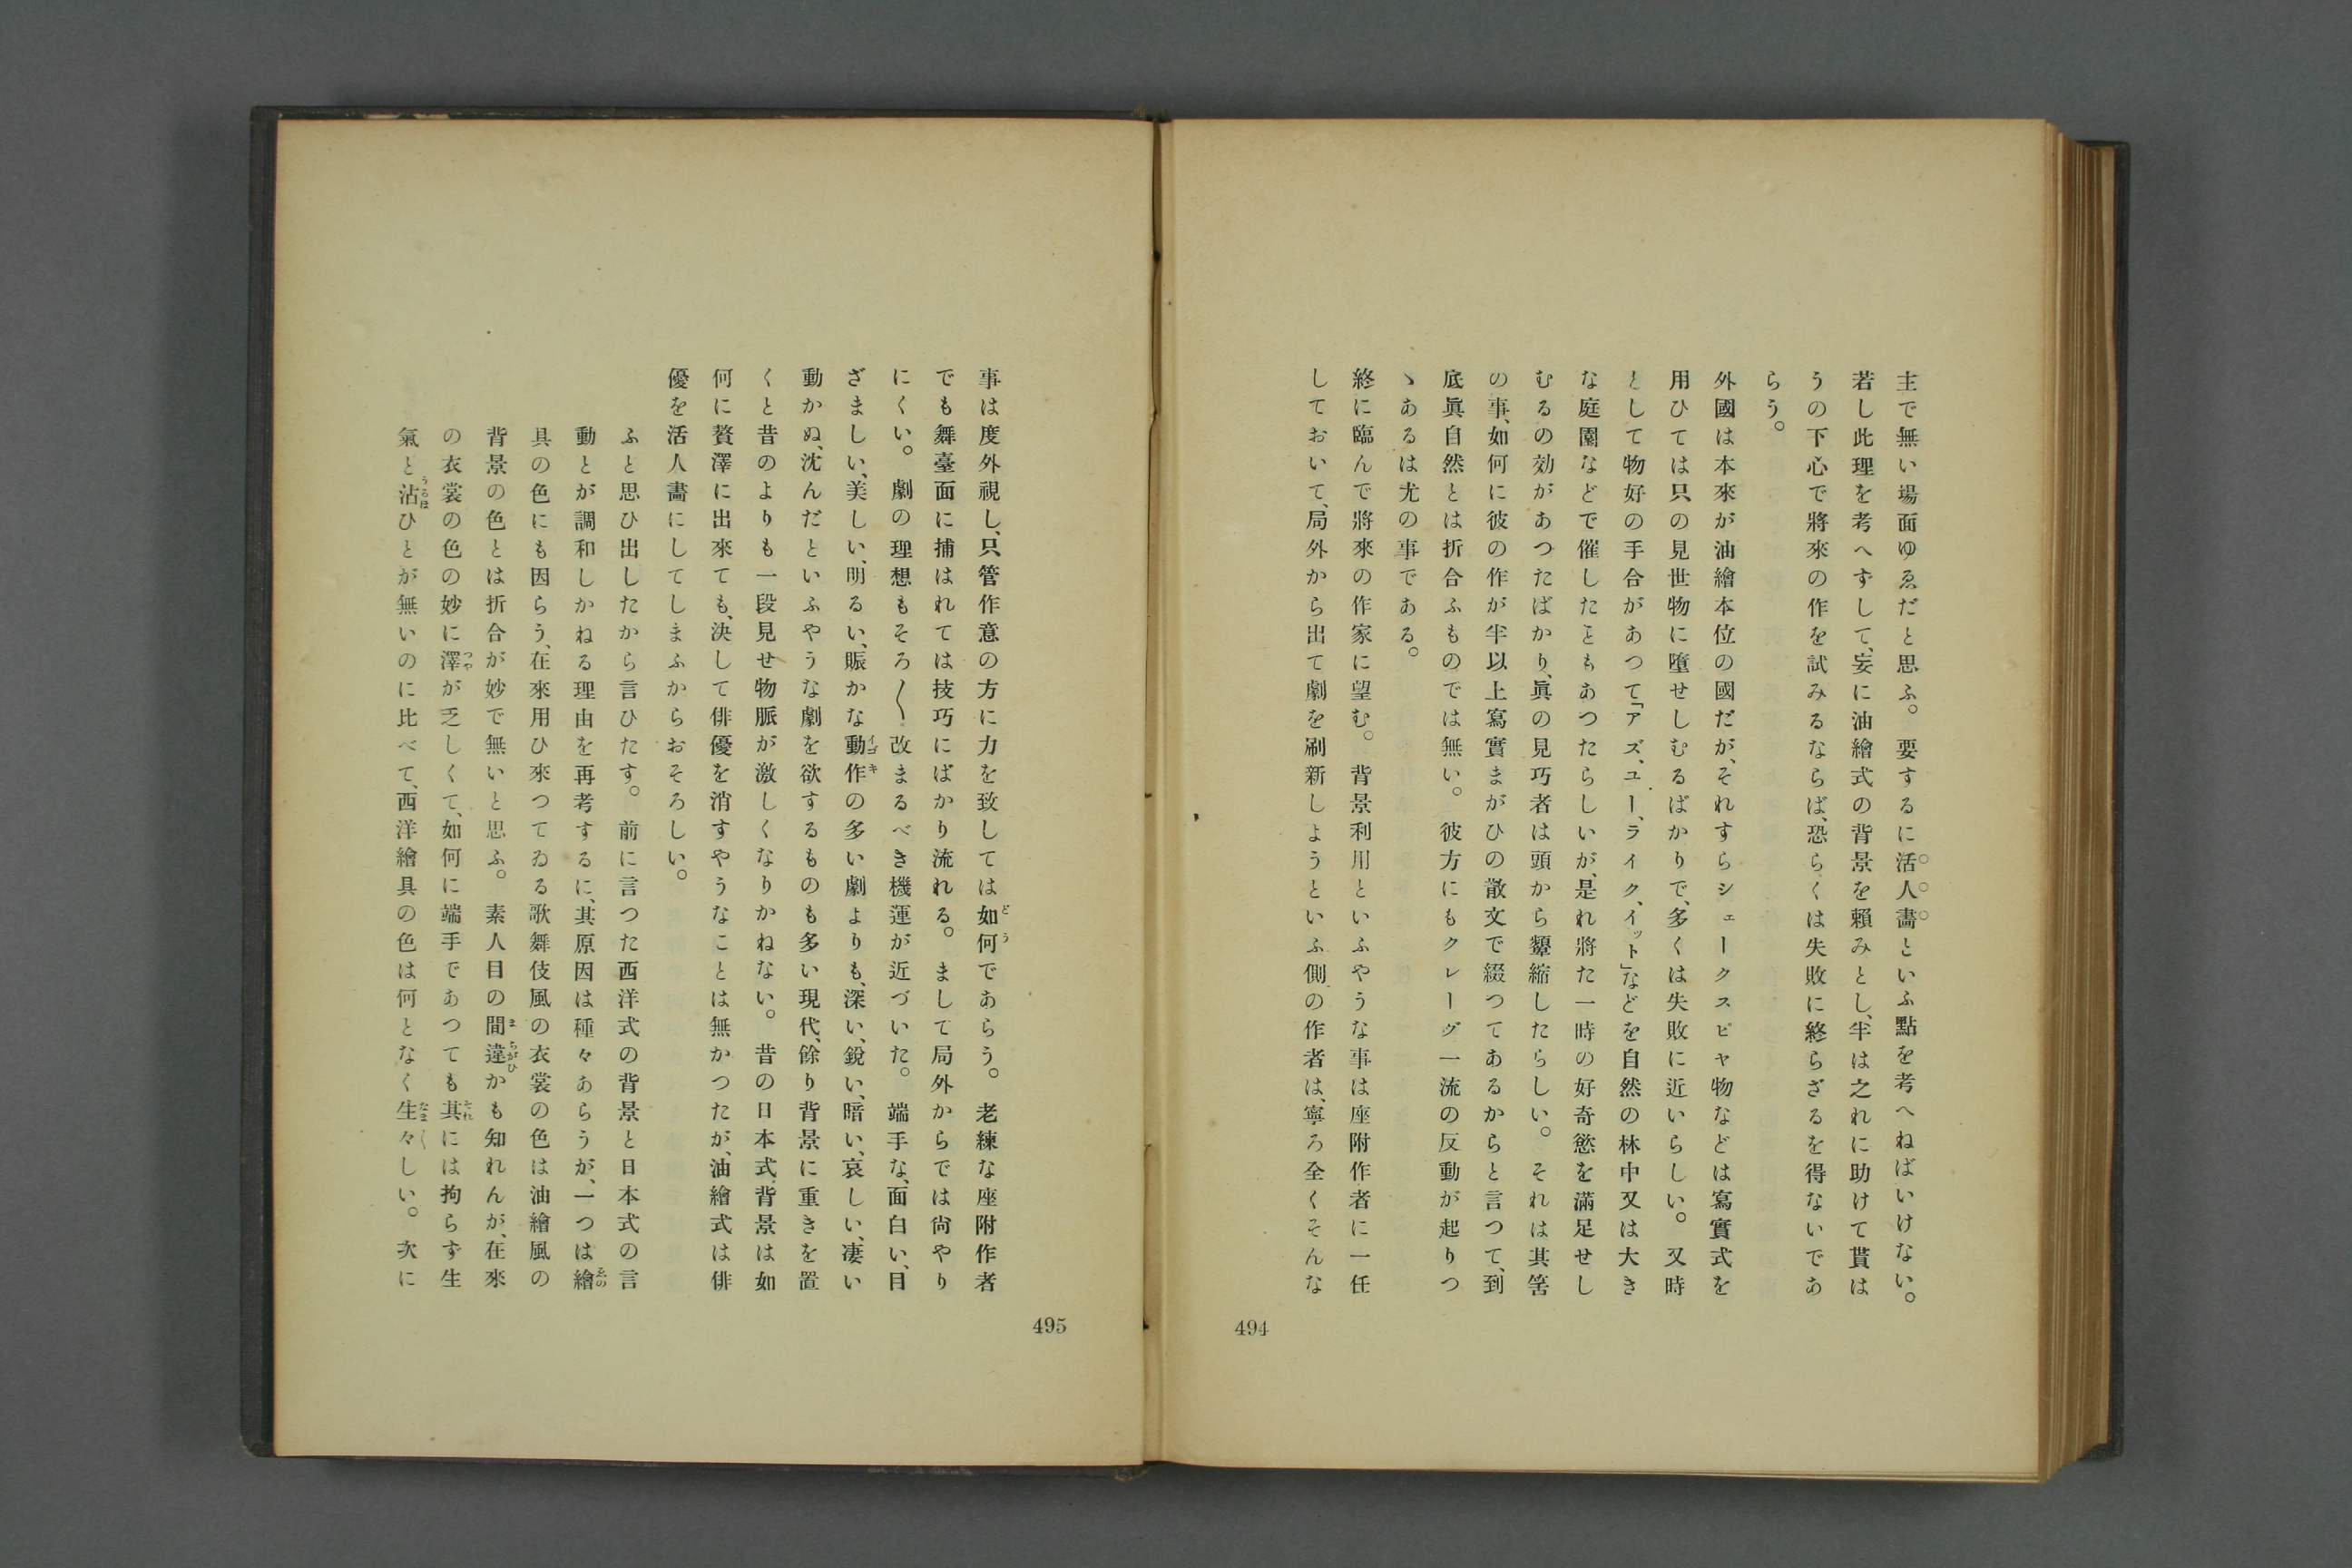 主で無い場面ゆゑだと思ふ。要するに活人畵といふ點を考へねばいけない。
若し此理を考へずして、妄に油繪式の背景を賴みとし、半は之れに助けて貰は
うの下心で將來の作を試みるならば、恐らくは失敗に終らざるを得ないであ
らう。
外國は本來が油繪本位の國だが、それすらシェークスピヤ物などは寫實式を
用ひては只の見世物に墮せしむるばかりで、多くは失敗に近いらしい。又時
として物好の手合があつて「アズ、ユー、ライク、イット」などを自然の林中又は大き
な庭園などで催したこともあつたらしいが、是れ將た一時の好奇慾を滿足せし
むるの効があつたばかり、眞の見巧者は頭から顰縮したらしい。それは其筈
の事、如何に彼の作が半以上寫實まがひの散文で綴つてあるからと言つて、到
底眞自然とは折合ふものでは無い。彼方にもクレーグ一流の反動が起りつ
ゝあるは尤の事である。
終に臨んで將來の作家に望む。背景利用といふやうな事は座附作者に一任
しておいて、局外から出て劇を刷新しようといふ側の作者は、寧ろ全くそんな
494
事は度外視し、只管作意の方に力を致しては如何であらう。老練な座附作者
でも舞臺面に捕はれては技巧にばかり流れる。まして局外からでは尙やり
にくい。劇の理想もそろ〱改まるべき機運が近づいた。端手な、面白い、目
ざましい、美しい、明るい、賑かな動作の多い劇よりも、深い、銳い、暗い、哀しい、凄い
動かぬ、沈んだといふやうな劇を欲するものも多い現代、餘り背景に重きを置
くと昔のよりも一段見せ物脈が激しくなりかねない。昔の日本式背景は如
何に贅澤に出來ても、決して俳優を消すやうなことは無かつたが、油繪式は俳
優を活人畵にしてしまふからおそろしい。
ふと思ひ出したから言ひたす。前に言つた西洋式の背景と日本式の言
動とが調和しかねる理由を再考するに、其原因は種々あらうが、一つは繪
具の色にも因らう、在來用ひ來つてゐる歌舞伎風の衣裳の色は油繪風の
背景の色とは折合が妙で無いと思ふ。素人目の間違かも知れんが、在來
の衣裳の色の妙に澤が乏しくて、如何に端手であつても其には拘らず生
氣と沾ひとが無いのに比べて、西洋繪具の色は何となく生々しい。次に
495